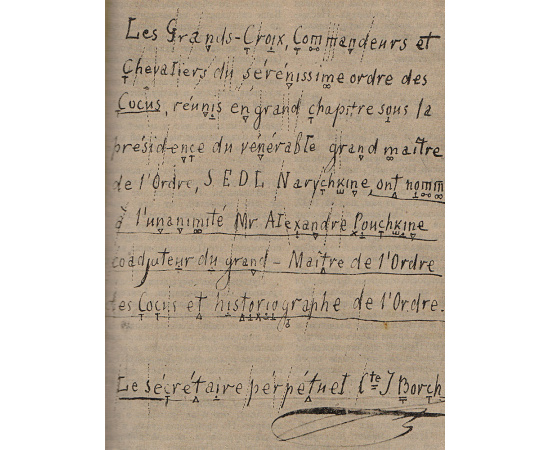 Les Grands-Croix, Commandeurs et
Chevaliers du sérénissime ordre des
Cocus, réunis en grand chapitre sous la
présidence du vénérable grand maître
de l'Ordre, S. E. D. L. Narychkine, ont nommé
à l'unanimité Mr Alexandre Pouchkine
coadjuteur du grand-Maître de l'Ordre
des Cocus et historiographe de l'Ordre.
Le sécrétaire pérpétuel Cte J Borch